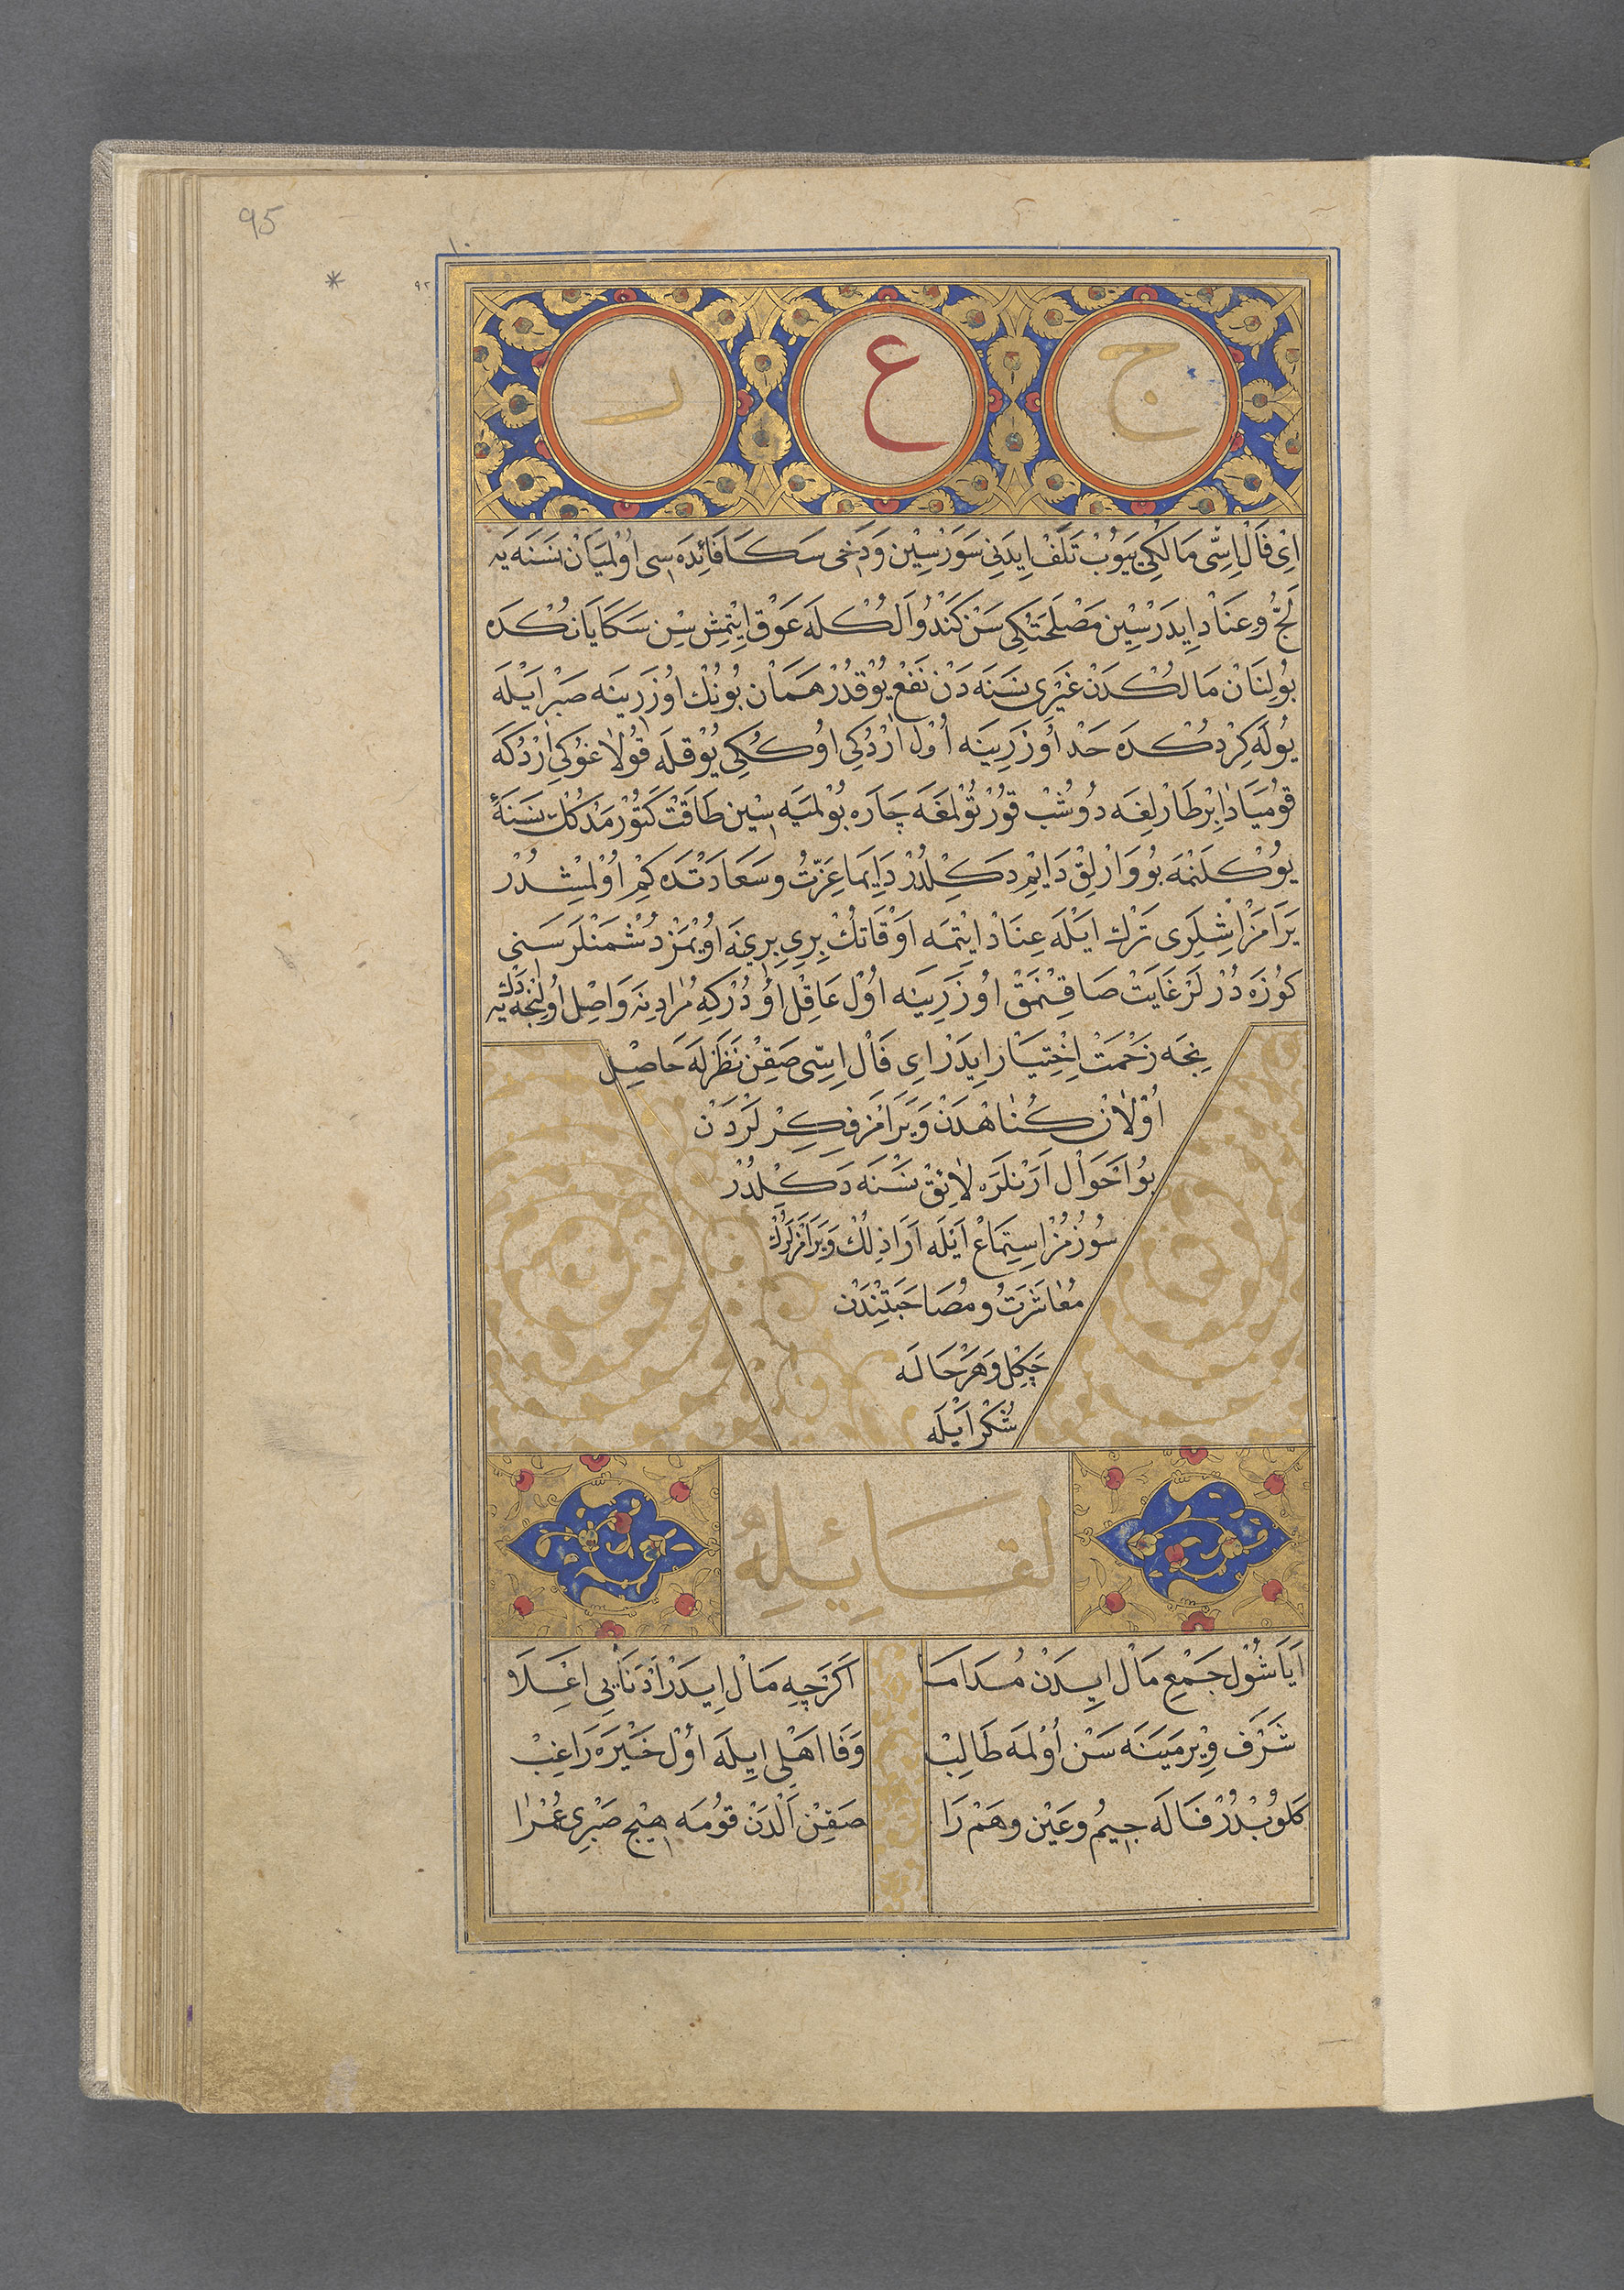 95
١٠
٩٢
ج ع ر
اِی فَالْ اِسِّی مَالِکِی یِیوُبْ تَلَفْ اِیدَنِی سَوَرْسِیْن وَدَخِی سَکَا فَائِدَه سِی اُوْلْمَیَانْ نَسْنَه یَه
لَجُّ وُ عِنَادْ اِیدَرْسِیْن مَصْلَحَتِکِی سَنْ کَنْدُو اَلُکْلَه عَوْق اِیْتْمِشْ سِنْ سَکَا یَانُکْدَه
بُولِنَانْ مَالُکْدَنْ غَیْرِی نَسْنَه دَنْ نَفْع یُوْقْدُرْ هَمَانْ بُونُكْ اوُزَرِینَه صَبْر اَیْلَه
یُولَه کِرْدُکْدَه حَدْ اُوزَرِینَه اُوْلْ اَرْدُکِی اوُکُکِی یُوْقْلَه قُولَاغُوکِی اَرْدُکَه
قُومِیَادَا بِرْ طَارْلِغَه دُوشُبْ قُورْتُوْلْمَغَه چَارَه بُوْلْمَیَه سِیْن طَاقَتْ کَتُورْمَدُکُكْ نَسْنَه
یُوْکْلَنْمَه بُو وَارْلِقْ دَایِمْ دَکِلْدُرْ دَایِمَا عِزَّتُ وسَعَادَتْدَه کِمْ اُوْلْمِشْدُرْ
یَرَامَزْ اِشْلَرِی تَرْك اَیْلَه عِنَادْ اِیْتْمَه اَوْقَاتُكْ بِرِی بِرِینَه اُویْمَزْ دُشْمَنْلَرْ سَنِی
کُوزَه دُرْلَرْ غَایَتْ صَاقِنْمَقْ اوُزَرِینَه اُوْلْ عَاقِلْ اُوْدُرْکِه مُرَادِنَه وَاصِلْ اُولِنْجَه دَكْ
نِجَه زَحْمَتْ اِخْتِیَارْ اِیدَرْ اِی فَالْ اِسِّی صَقِنْ نَظَرْلَه حَاصِلْ
اُوْلَانْ کُنَاهْدَنْ وَیَرَامَزْ فِکِرْلَرْدَنْ
بُو اَحْوَالْ اَرَنْلَرَه لَائِقْ نَسْنَه دَکِلْدُرْ
سُوزُمُزْ اِسْتِمَاعْ اَیْلَه اَوَاذِلُكْ وَیَرَامَزْلَرُكْ
مُعَاشَرَتُ ومُصَاحَبَتِنْدَنْ
چَکِلْ وَهَرْ حَالَه
شُکْرْ اَیْلَه
لقَائِلِهِ
اَیَا شُوْلْ جَمْعِ مَالْ اِیدَنْ مُدَامَا اَکَرْچِه مَالْ اِیدَرْ اَدْنَایِی اَعْلَا
شَرَفْ وِیْرْمَیَنَه سَنْ اُوْلْمَه طَالِبْ وَفَا اَهْلِی اِیلَه اُوْلْ خَیْرَه رَاغِبْ
کَلُوبْدُرْ فَالَه جِیمُ وعَیْن وهَمْ رَا صَقِنْ اَلْدَنْ قُومَه هِیْچ صَبْرِی عُمْرَا